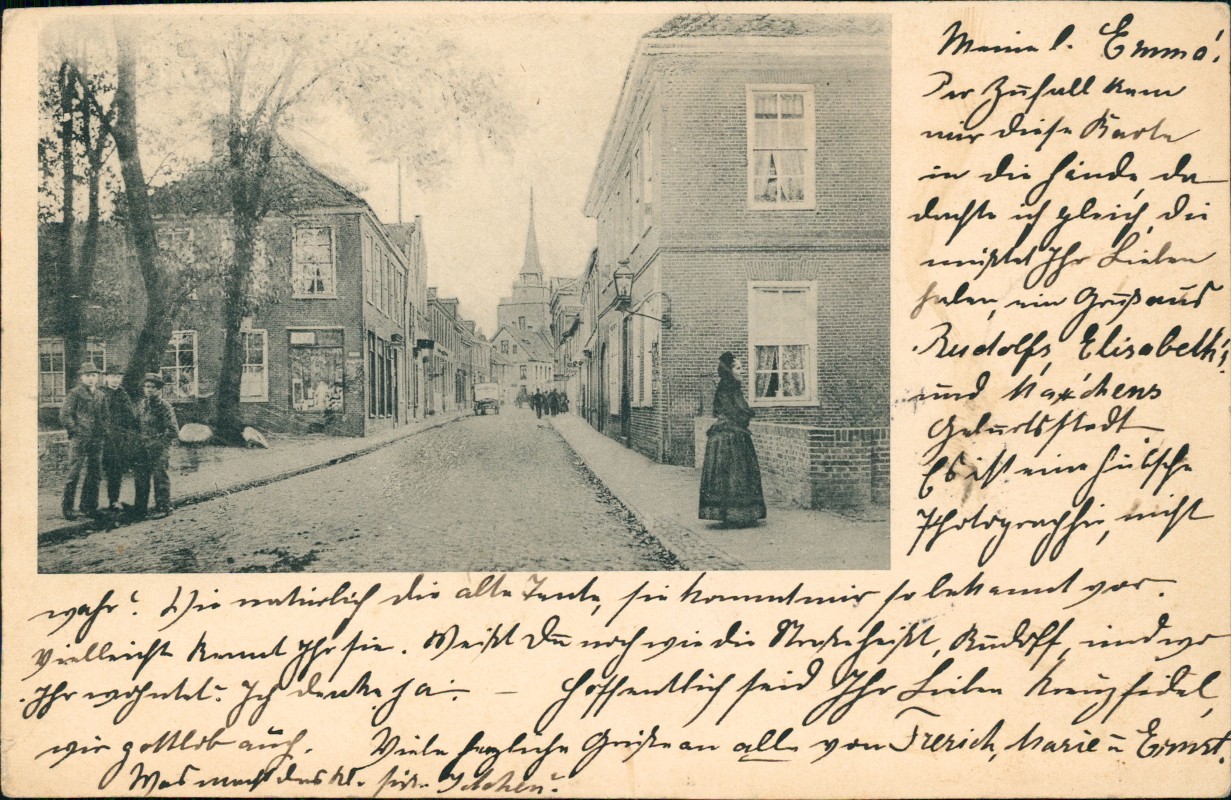 Meine l. Emma!
Per Zufall kam
mir diese Karte
in die Hände, da
dachte ich gleich, die
müßtet Ihr Lieben
haben, ein Gruß aus
Rudolfs, Elisabeth's
und Mäxchens
Geburtsstadt
Es ist eine hübsche
Photographie, nicht
wahr? Wie natürlich die alte Tante, sie kommt mir so bekannt vor.
Vielleicht kennt Ihr sie. Weißt Du noch wie die Straße heißt, Rudolf, und wo
Ihr wohntet? Ich denke ja. – Hoffentlich seid Ihr Lieben kreuzfidel,
wir gottlob auch. Viele herzliche Grüße an alle von Frerich, Marie u Ernst.
Was macht das kl.